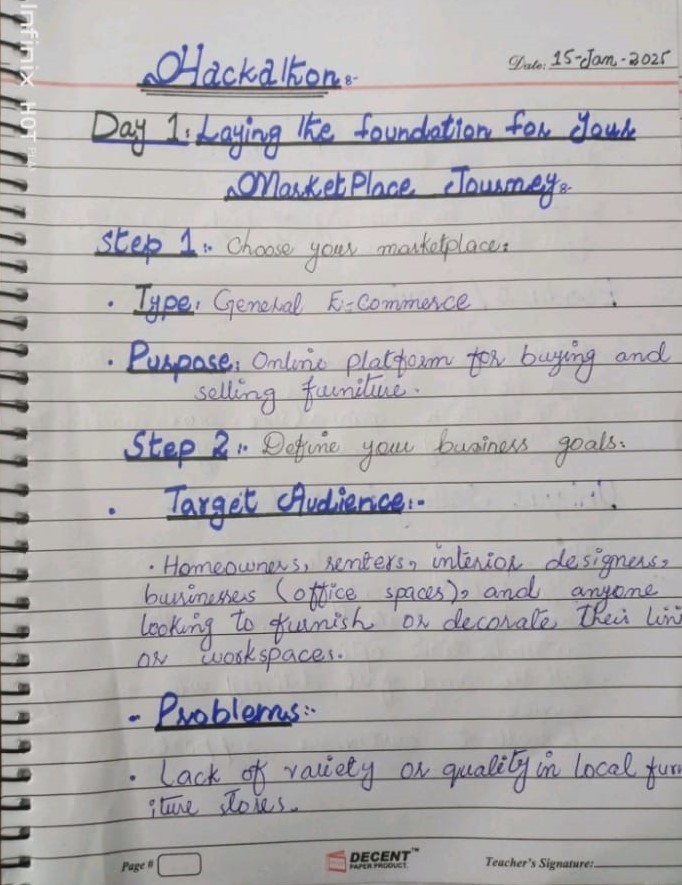 Infinix HOT
Hackathon:-
Date: 15-Jan-2025
Day 1: Laying the foundation for Your
MarketPlace Journey:-
Step 1:- Choose your marketplace:
• Type: General E-Commerce
• Purpose: Online platform for buying and
selling furniture.
Step 2:- Define your business goals:
• Target Audience:-
• Homeowners, renters, interior designers,
businesses (office spaces), and anyone
looking to furnish or decorate their livi
or workspaces.
- Problems:-
• Lack of variety or quality in local furn
iture stores.
Page #
DECENT™
PAPER PRODUCT.
Teacher's Signature: